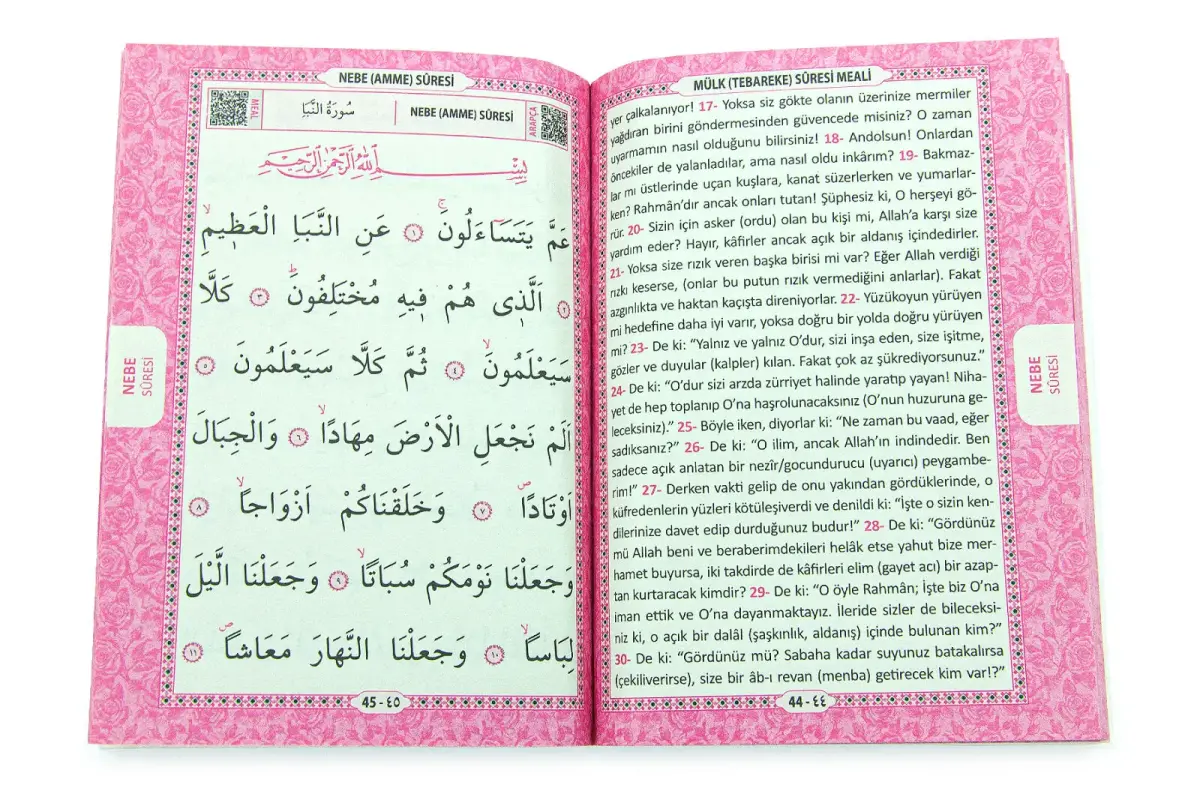 MÜLK (TEBAREKE) SÛRESİ MEALİ
yer çalkalanıyor! 17- Yoksa siz gökte olanın üzerinize mermiler
yağdıran birini göndermesinden güvencede misiniz? O zaman
uyarmamın nasıl olduğunu bilirsiniz! 18- Andolsun! Onlardan
öncekiler de yalanladılar, ama nasıl oldu inkârım? 19- Bakmaz-
lar mı üstlerinde uçan kuşlara, kanat süzerlerken ve yumarlar-
ken? Rahmân’dır ancak onları tutan! Şüphesiz ki, O herşeyi gö-
rür. 20- Sizin için asker (ordu) olan bu kişi mi, Allah’a karşı size
yardım eder? Hayır, kâfirler ancak açık bir aldanış içindedirler.
21- Yoksa size rızık veren başka birisi mi var? Eğer Allah verdiği
rızkı keserse, (onlar bu putun rızık vermediğini anlarlar). Fakat
azgınlıkta ve haktan kaçışta direniyorlar. 22- Yüzükoyun yürüyen
mi hedefine daha iyi varır, yoksa doğru bir yolda doğru yürüyen
mi? 23- De ki: “Yalnız ve yalnız O’dur, sizi inşa eden, size işitme,
gözler ve duyular (kalpler) kılan. Fakat çok az şükrediyorsunuz.”
24- De ki: “O’dur sizi arzda zürriyet halinde yaratıp yayan! Niha-
yet de hep toplanıp O’na haşrolunacaksınız (O’nun huzuruna ge-
leceksiniz).” 25- Böyle iken, diyorlar ki: “Ne zaman bu vaad, eğer
sadıksanız?” 26- De ki: “O ilim, ancak Allah’ın indindedir. Ben
sadece açık anlatan bir nezîr/gocundurucu (uyarıcı) peygambe-
rim!” 27- Derken vakti gelip de onu yakından gördüklerinde, o
küfredenlerin yüzleri kötüleşiverdi ve denildi ki: “İşte o sizin ken-
dilerinize davet edip durduğunuz budur!” 28- De ki: “Gördünüz
mü Allah beni ve beraberimdekileri helâk etse yahut bize mer-
hamet buyursa, iki takdirde de kâfirleri elim (gayet acı) bir azap-
tan kurtaracak kimdir? 29- De ki: “O öyle Rahmân; İşte biz O’na
iman ettik ve O’na dayanmaktayız. İleride sizler de bileceksi-
niz ki, o açık bir dalâl (şaşkınlık, aldanış) içinde bulunan kim?”
30- De ki: “Gördünüz mü? Sabaha kadar suyunuz batakalırsa
(çekiliverirse), size bir âb-ı revan (menba) getirecek kim var!?”
44 - ٤٤
NEBE
SÛRESİ
NEBE (AMME) SÛRESİ
MEAL
سُورَةُ النَّبَأِ
NEBE (AMME) SÛRESİ
ARAPÇA
بِسْمِ اللهِ الرَّحْمٰنِ الرَّحِيمِ
عَمَّ يَتَسَاءَلُونَۚ ﴿١﴾ عَنِ النَّبَاِ الْعَظ۪يمِۙ
﴿٢﴾ اَلَّذ۪ي هُمْ ف۪يهِ مُخْتَلِفُونَۜ ﴿٣﴾ كَلَّا
سَيَعْلَمُونَۙ ﴿٤﴾ ثُمَّ كَلَّا سَيَعْلَمُونَ ﴿٥﴾
اَلَمْ نَجْعَلِ الْاَرْضَ مِهَادًاۙ ﴿٦﴾ وَالْجِبَالَ
اَوْتَادًاۖ ﴿٧﴾ وَخَلَقْنَاكُمْ اَزْوَاجًاۙ ﴿٨﴾
وَجَعَلْنَا نَوْمَكُمْ سُبَاتًاۙ ﴿٩﴾ وَجَعَلْنَا الَّيْلَ
لِبَاسًاۙ ﴿١٠﴾ وَجَعَلْنَا النَّهَارَ مَعَاشًاۖ ﴿١١﴾
45 - ٤٥
NEBE
SÛRESİ